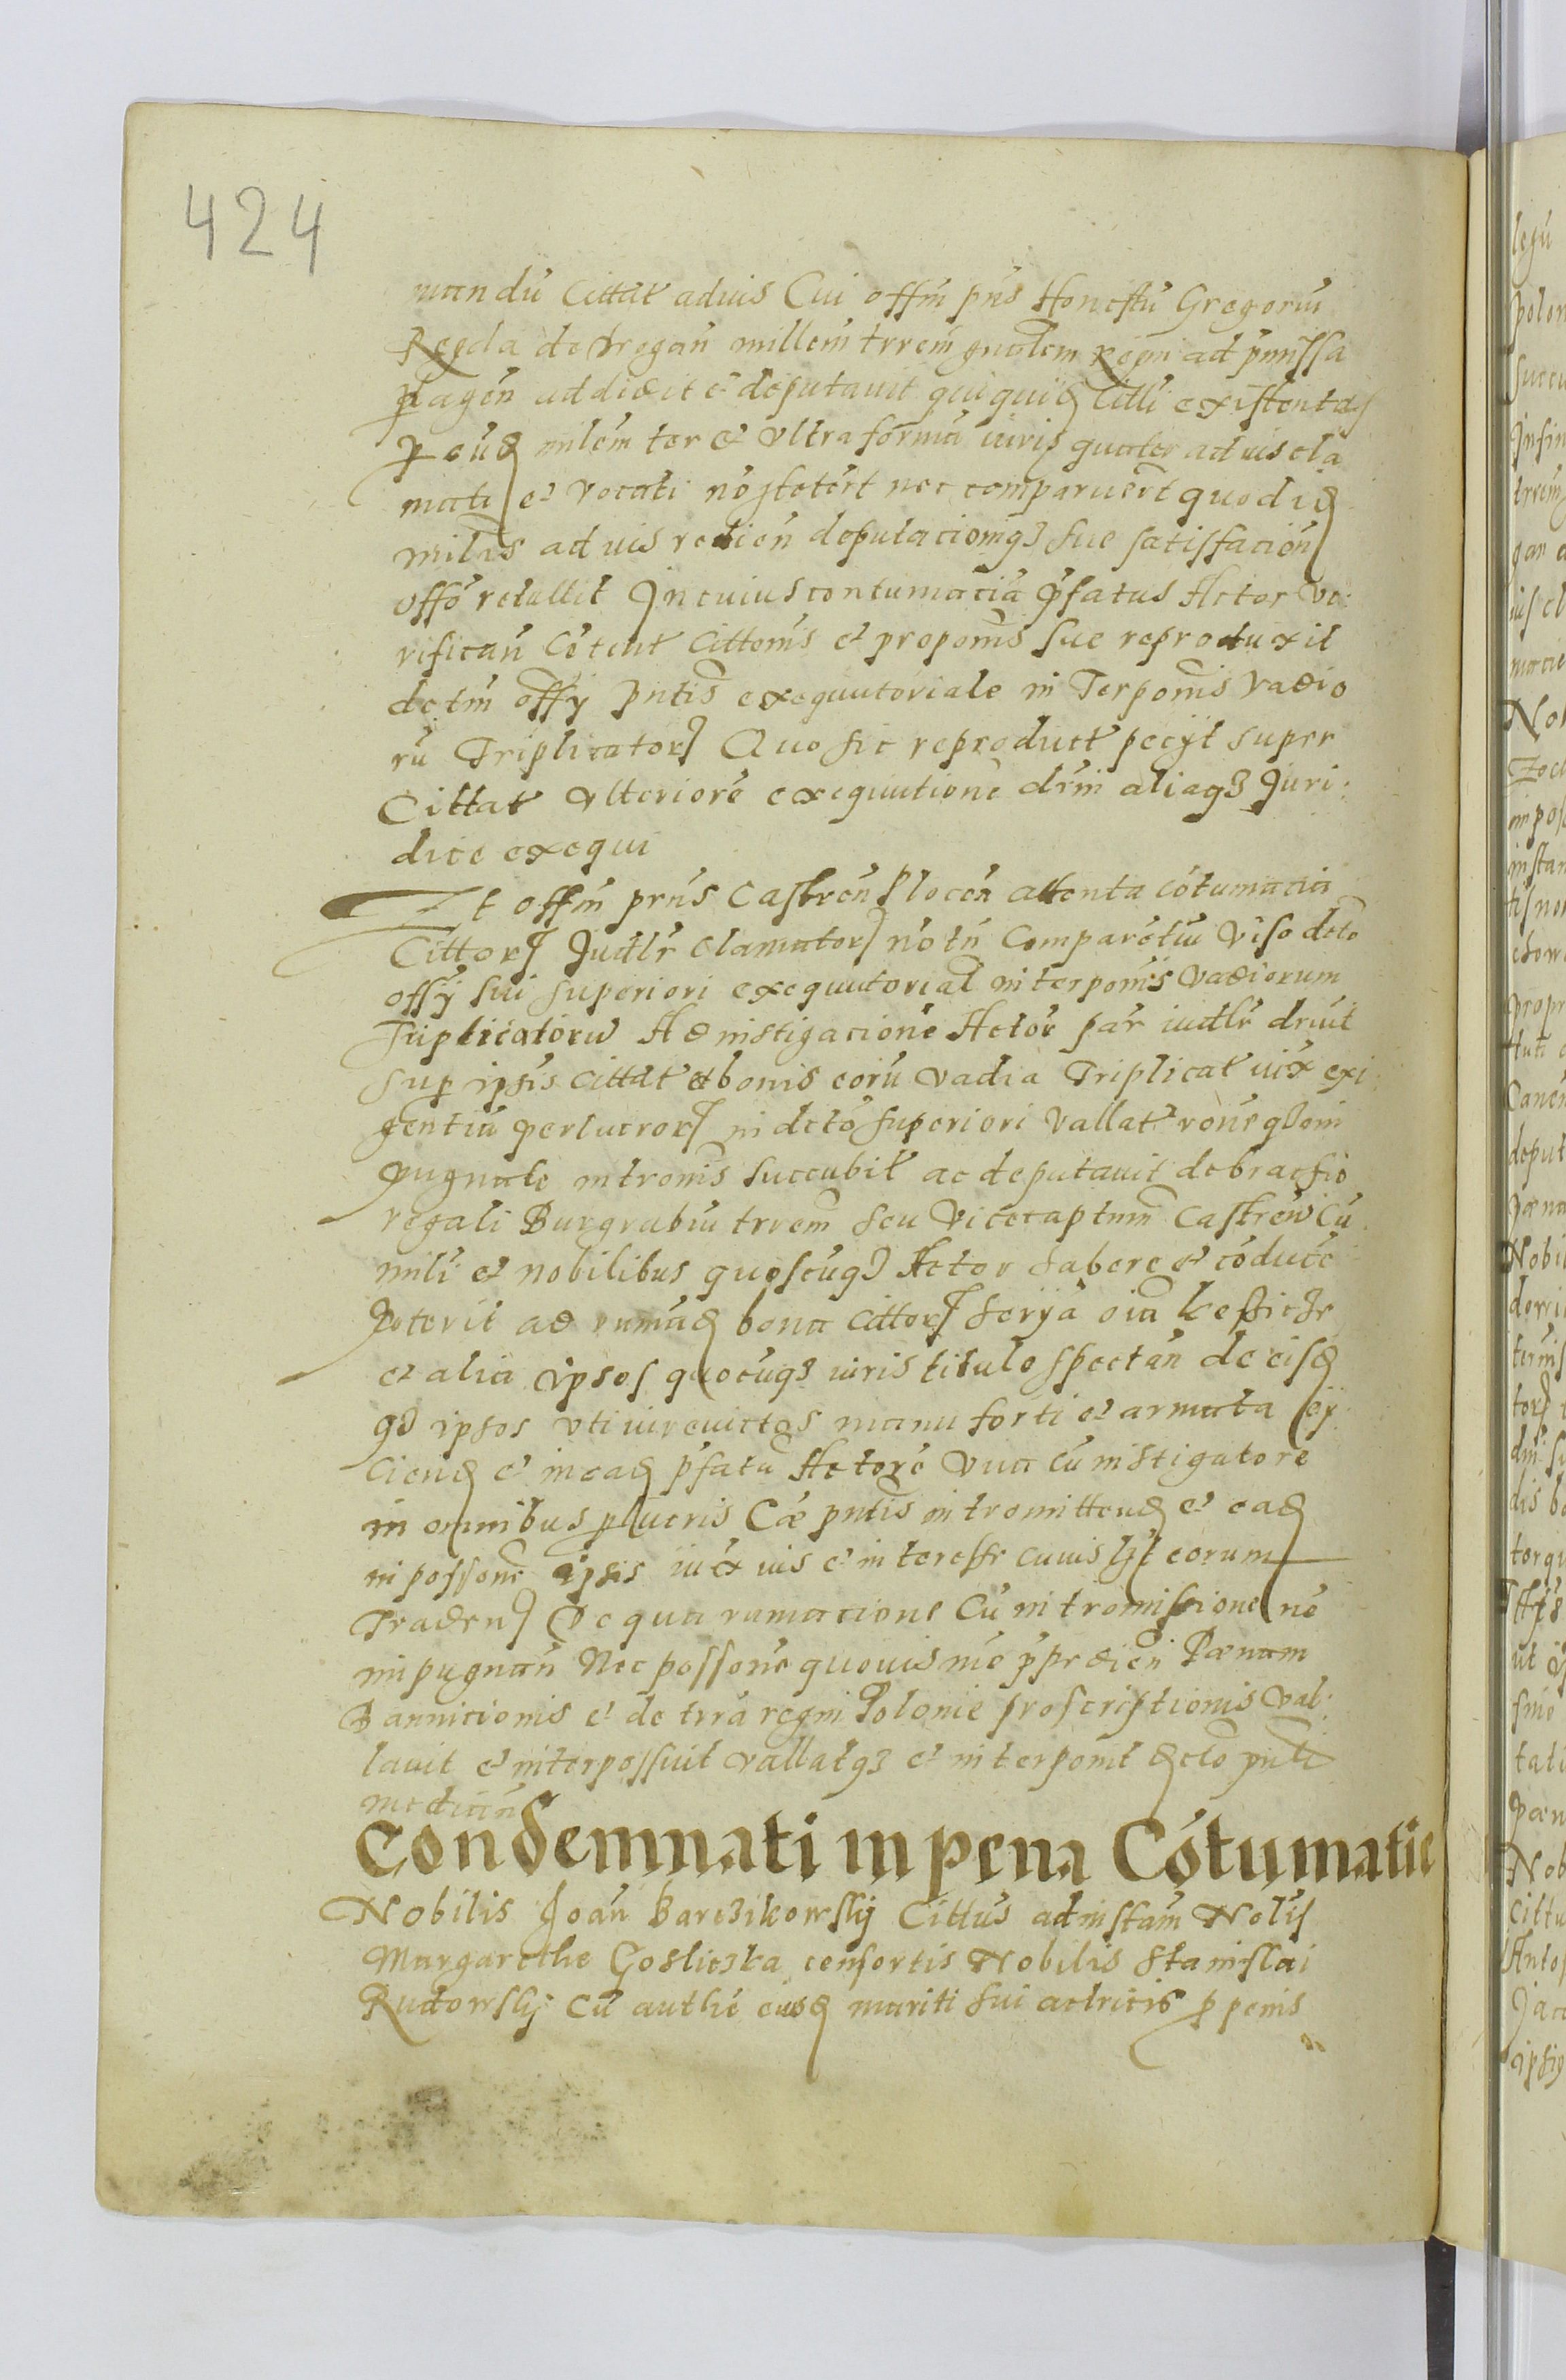 424
mandu Cittat aduis Cui offm pns Honestu Gregoriu
Regda de Dregan millem trrem gnalem Regni ad pmissa
pagen addidit et deputauit qui quid Citti existentes
p eud milem ter et vltra forma iuris quater ad uis cla
mati et vocati no stetert nec comparuert quod id
miles ad uis redien deputacionisq3 sue satisfacion
offo retullit In cuius contumacia pfatus Actor ve:
rifican Cotent Cittonis et proponis sue reproduxit
dctm offy pntis exequutoriale in Terponis Vadio
ru Triplicator Quo sic reproduct pecijt super
Cittat vlteriore exequutione drni aliaq3 Juri:
dice exequi
Et offm prns Castren Plocen attenta cotumacia
Cittor Judlr clamator no tn Comparetiu Viso dcto
offy sui superiori exequutorial interponis Vadiorum
Triplicatoru Ad instigacione Actor par iudlr druit
sup ipsis Cittat et bonis eoru vadia Triplicat iux exi
gentia perlucror in dcto superiori Vallat rone
pugnate intronis succubit ac deputauit de brachio
regali Burgrabiu trrem seu Vicecaptnm Castren Cu
mili et nobilibus quoscuq3 Actor habere et coduce
Poterit ad rumad bona Cittor oia
et alia ipsos quocuq3 iuris titulo spectan de eisd
q3 ipsos vti iureuictos manu forti et armata eij
ciend et in ead pfatu Actore Vna cu instigatore
in omnibus plucris Cae pntis intromittend et ead
in possone ipsis iux ius et interesse cuius eorum
Traden De qua rumacione Cu intromissione no
inpugnan Nec possone quouis mo Paenam
Bannicionis et de trra regni Polonie proscriptionis Val:
lauit et interpossuit vallatq3 et interponit dcto pnti
median
Condemnati in pena Cotumatie
Nobilis Joan Barczikowskij Cittus ad instam Nolis
Margarethe Goslicska consortis Nobilis Stanislai
Rudowskij Cu authe eusd mariti sui actricis p penis